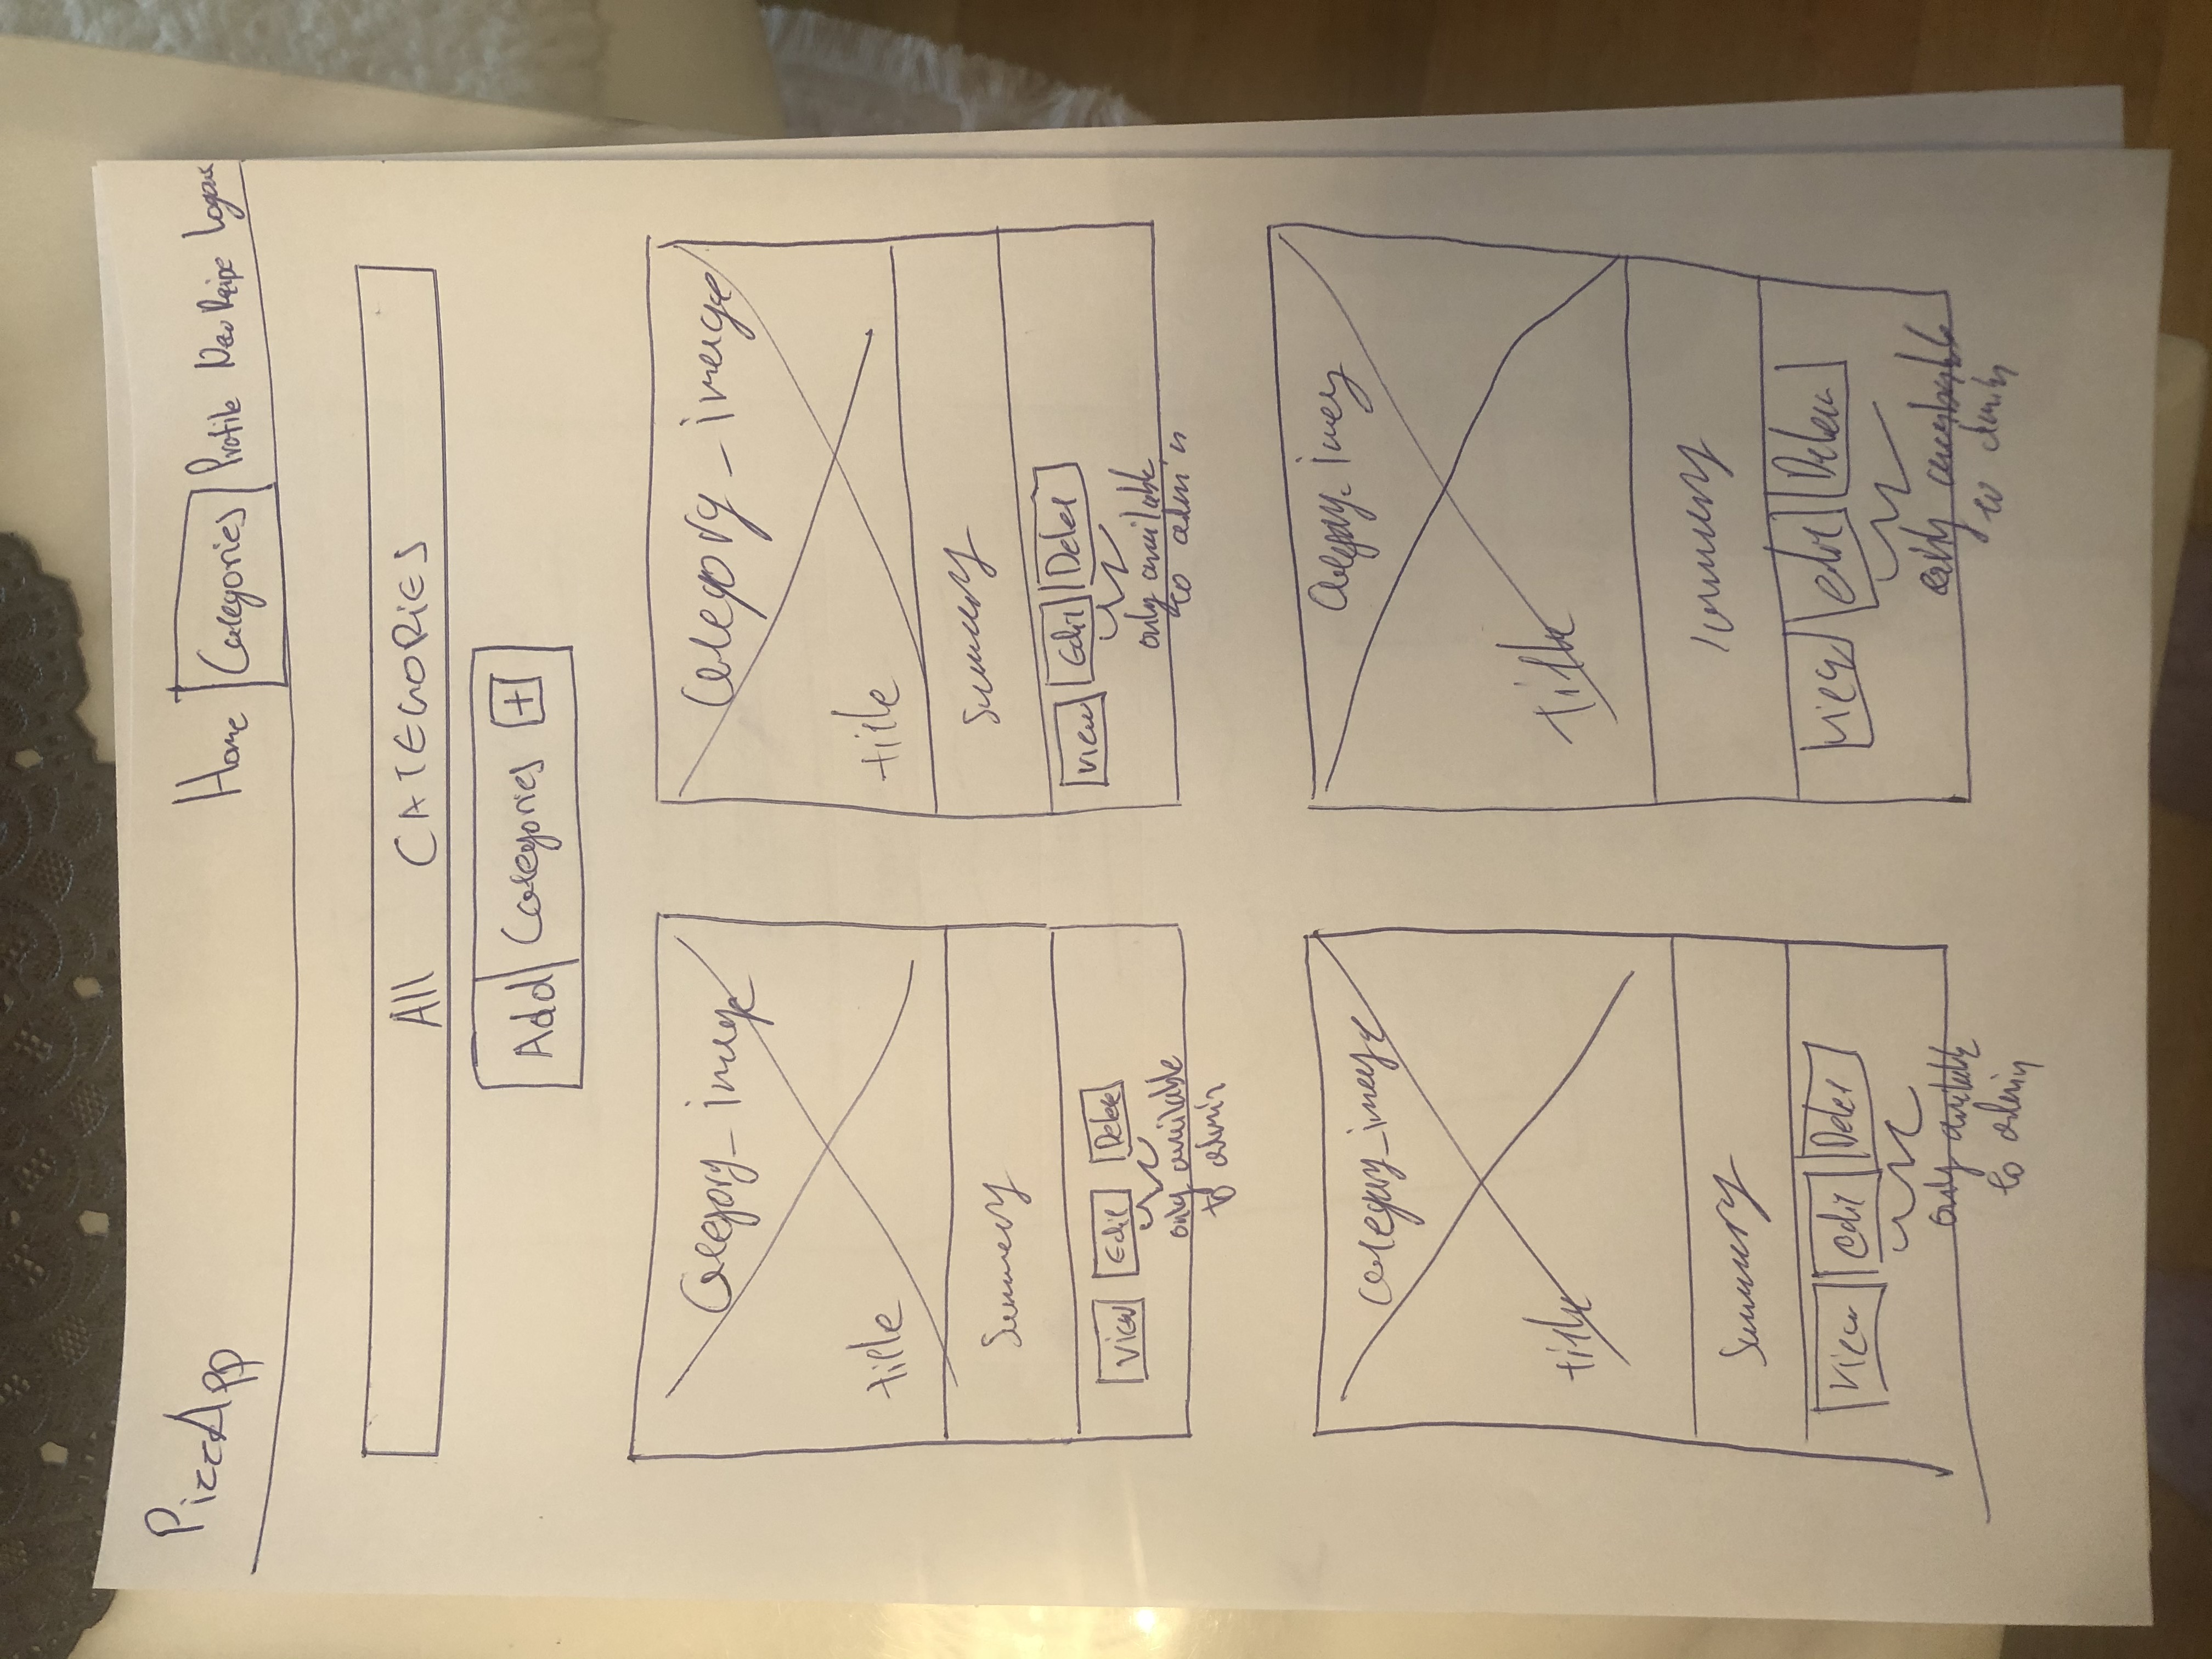 PizzApp
Home Categories Profile New Recipe Logout
All CATEGORIES
Add Categories +
Category_image
title
Summary
View Edit Delete
only available
to admin
Category_image
title
Summary
View Edit Delete
only available
to admin
Category_image
title
Summary
View edit Delete
only available
to admin
Category_image
Title
Summary
View edit Delete
to admin